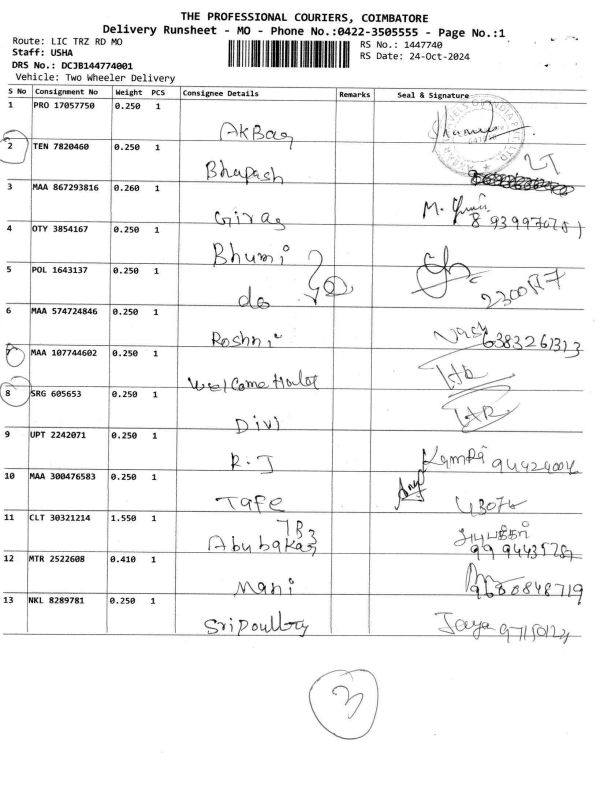 THE PROFESSIONAL COURIERS, COIMBATORE
Delivery Runsheet - MO - Phone No.:0422-3505555 - Page No.:1
Route: LIC TRZ RD MO
RS No.: 1447740
Staff: USHA
RS Date: 24-Oct-2024
DRS No.: DCJB144774001
Vehicle: Two Wheeler Delivery
S No Consignment No Weight PCS Consignee Details Remarks Seal & Signature
1 PRO 17057750 0.250 1
AkBag
2 TEN 7820460 0.250 1
Bhapash
3 MAA 867293816 0.260 1
Girag M.
4 OTY 3854167 0.250 1
Bhumi
5 POL 1643137 0.250 1
do
6 MAA 574724846 0.250 1
Roshni 6383261313
7 MAA 107744602 0.250 1
Welcome Hotel
8 SRG 605653 0.250 1
Divi
9 UPT 2242071 0.250 1
R.J
10 MAA 300476583 0.250 1
Tape 43074
11 CLT 30321214 1.550 1
Abubakar
12 MTR 2522608 0.410 1
Mani 9680848719
13 NKL 8289781 0.250 1
Sri Poultry Jaya
3